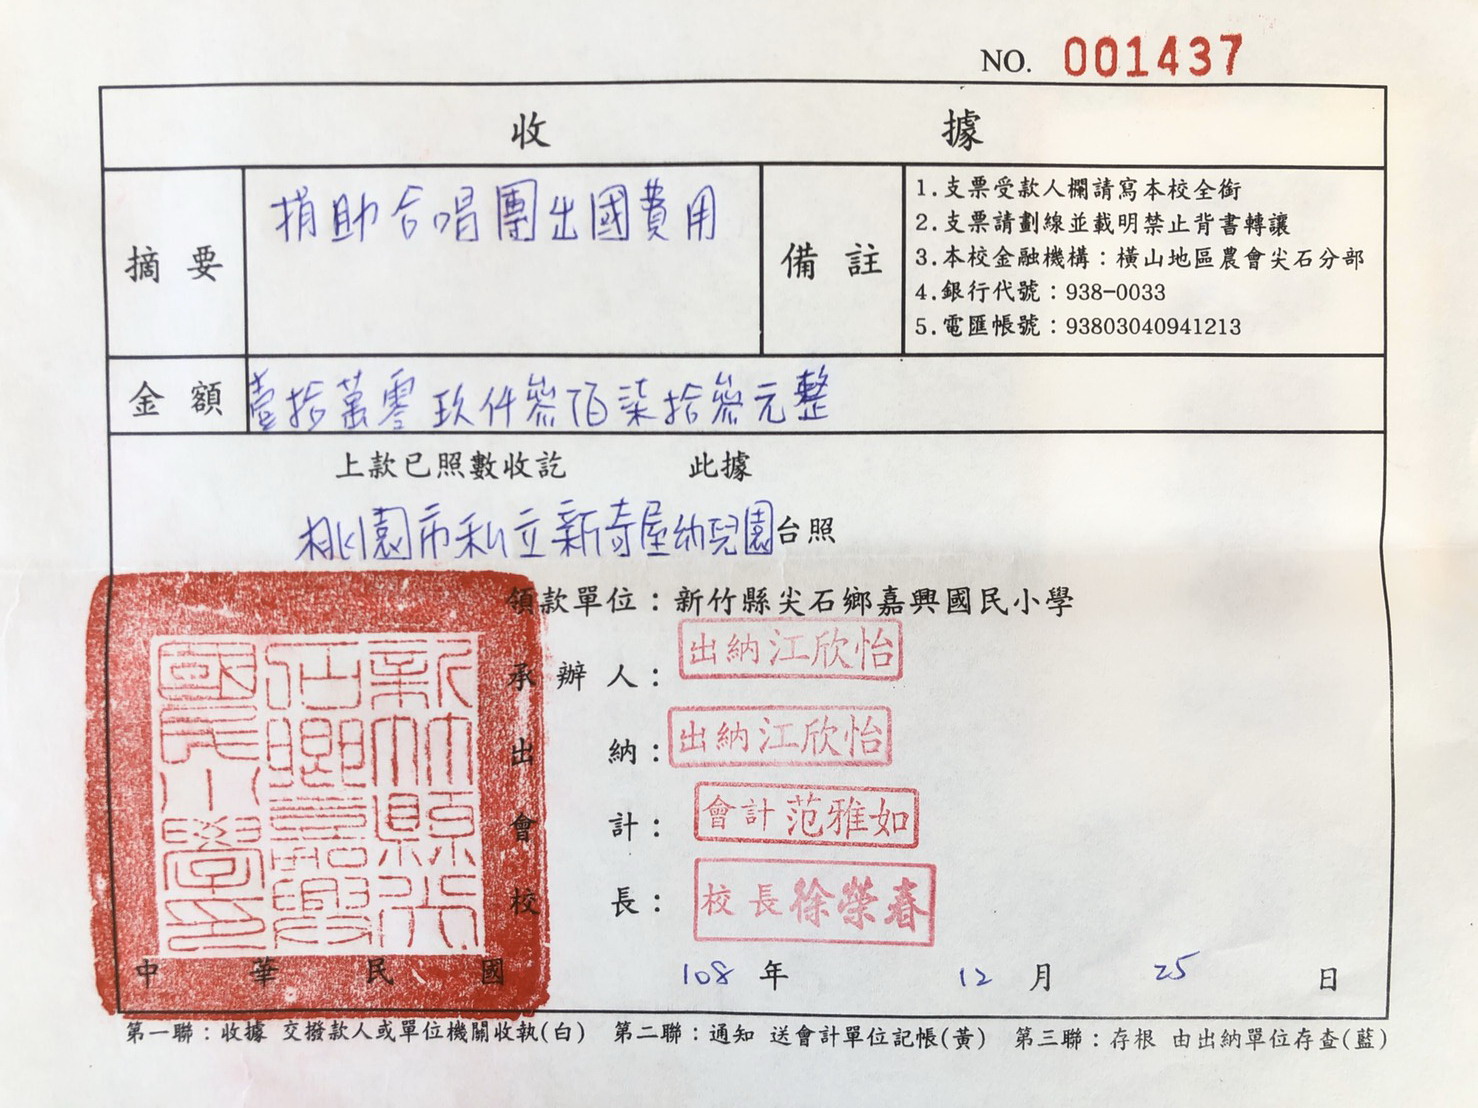 NO. 001437
收 據
摘 要
捐助合唱團出國費用
備 註
1.支票受款人欄請寫本校全銜
2.支票請劃線並載明禁止背書轉讓
3.本校金融機構：橫山地區農會尖石分部
4.銀行代號：938-0033
5.電匯帳號：93803040941213
金 額
壹拾萬零玖仟參佰柒拾參元整
上款已照數收訖 此據
桃園市私立新奇屋幼兒園台照
領款單位：新竹縣尖石鄉嘉興國民小學
承辦人：
出納江欣怡
出 納：
出納江欣怡
會 計：
會計范雅如
校 長：
校長徐榮春
新竹縣尖
石鄉嘉興
國民小學印
中華民國 108 年 12 月 25 日
第一聯：收據 交撥款人或單位機關收執(白) 第二聯：通知 送會計單位記帳(黃) 第三聯：存根 由出納單位存查(藍)